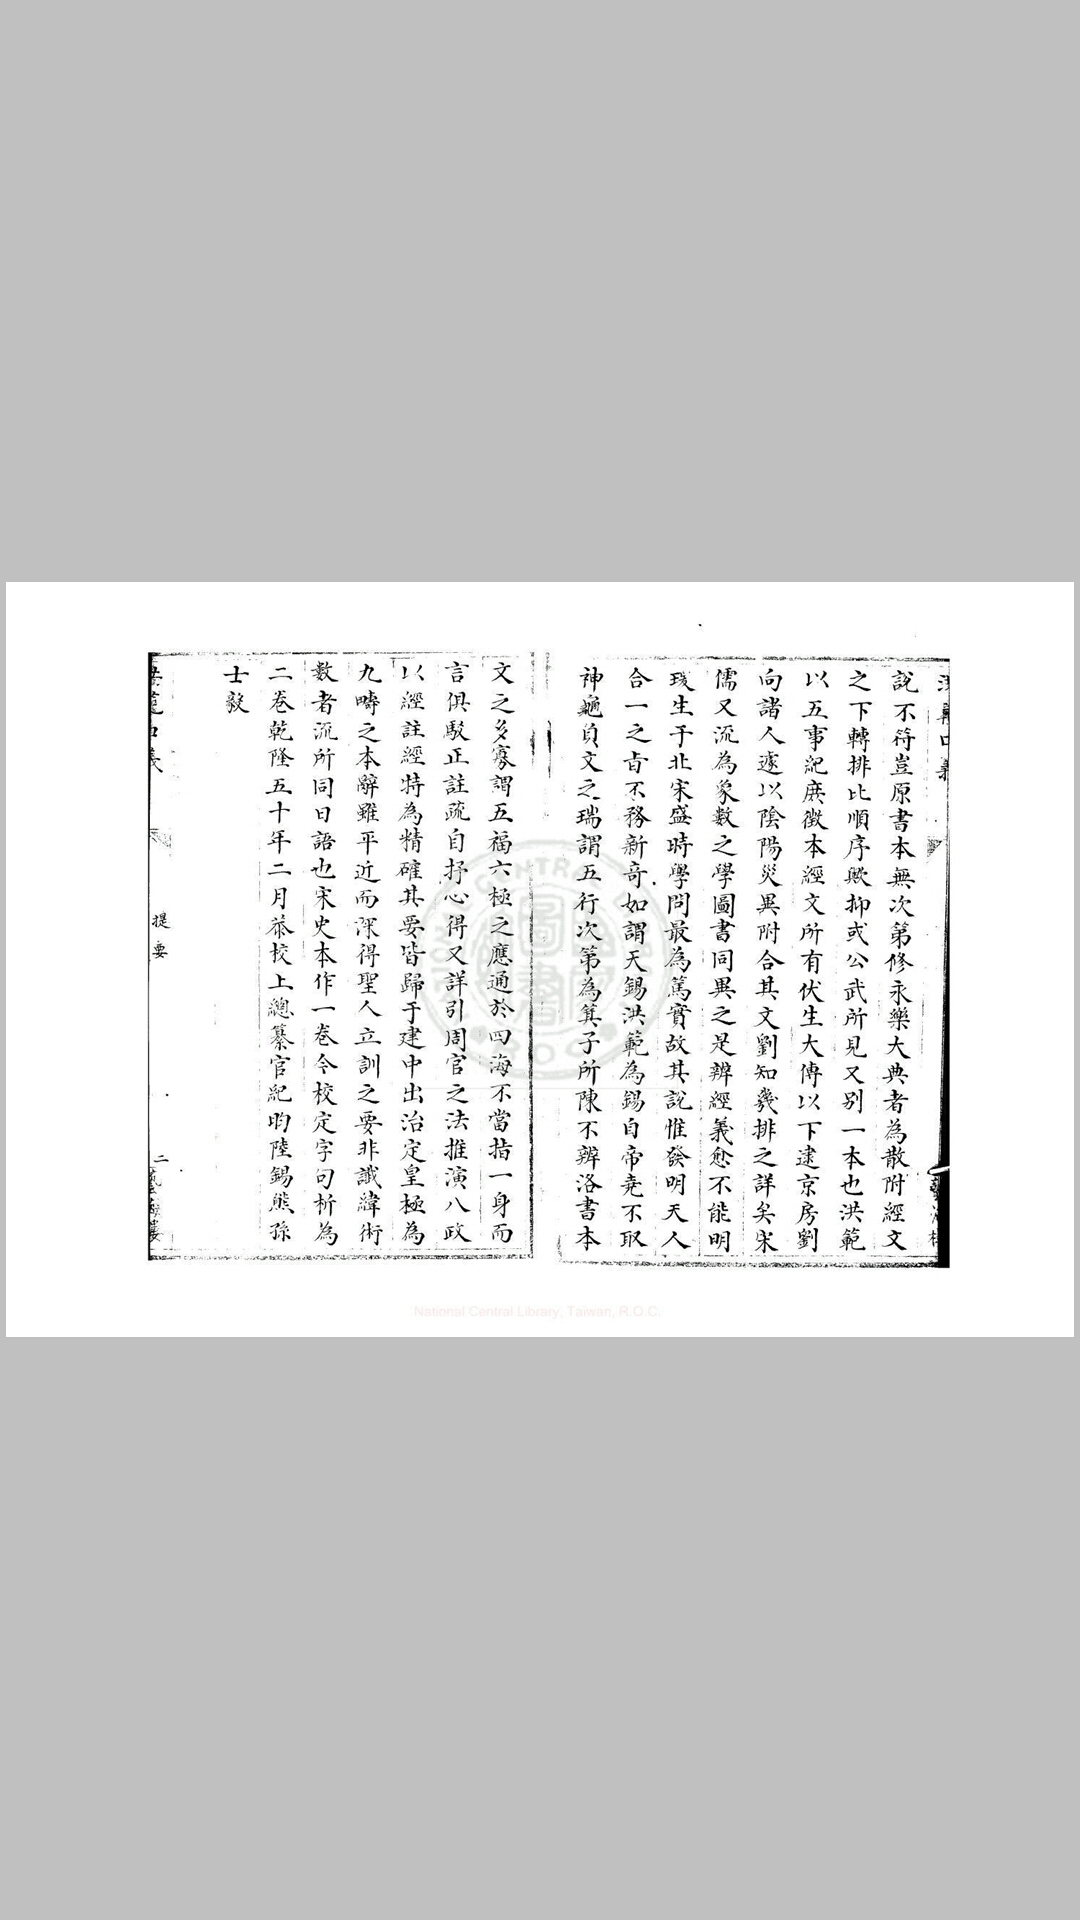 洪範口義
說不符豈原書本無次第修永樂大典者為散附經文
之下轉排比順序歟抑或公武所見又别一本也洪範
以五事紀庶徵本經文所有伏生大傳以下逮京房劉
向諸人遽以陰陽災異附合其文劉知幾排之詳矣宋
儒又流為象數之學圖書同異之是辨經義愈不能明
瑗生于北宋盛時學問最為篤實故其說惟發明天人
合一之旨不務新奇如謂天錫洪範為錫自帝堯不取
神龜負文之瑞謂五行次第為箕子所陳不辨洛書本
文之多寡謂五福六極之應通於四海不當指一身而
言俱駁正註疏自抒心得又詳引周官之法推演八政
以經註經特為精確其要皆歸于建中出治定皇極為
九疇之本辭雖平近而深得聖人立訓之要非讖緯術
數者流所同日語也宋史本作一卷今校定字句析為
二卷乾隆五十年二月恭校上總纂官紀昀陸錫熊孫
士毅
提要
二
National Central Library, Taiwan, R.O.C.